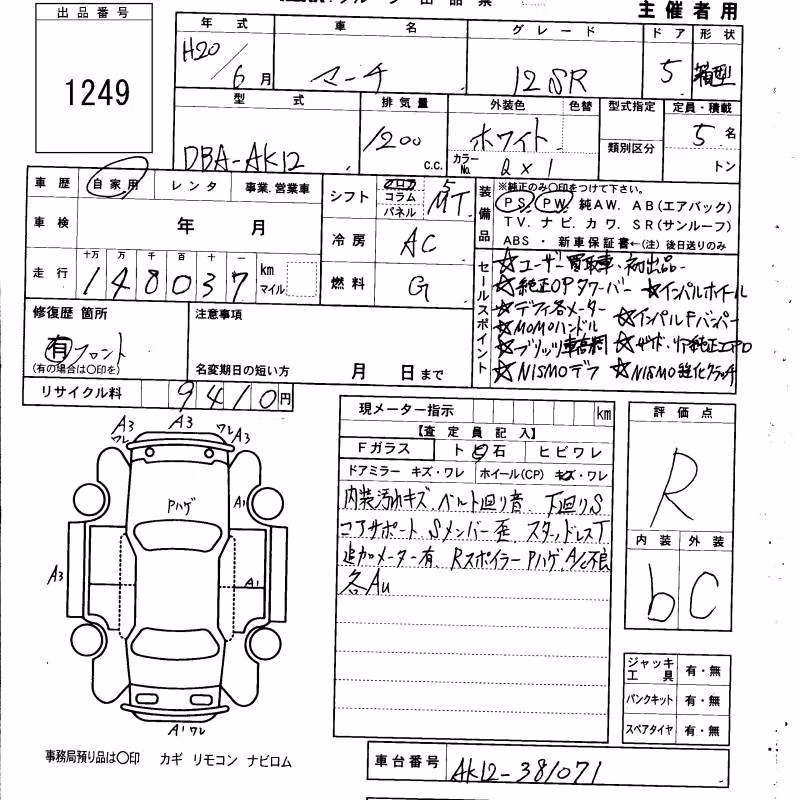 主催者用
出品番号
1249
年式 車名 グレード ドア 形状
H20/6月 マーチ 12SR 5 箱型
型式 排気量 外装色 色替 型式指定 定員・積載
DBA-AK12 1200 c.c. ホワイト 類別区分 5名
カラーNo. QX1 トン
車歴 自家用 レンタ 事業.営業車
シフト フロア コラム パネル 5 MT
装備品 ※純正のみ〇印をつけて下さい。
PS. PW. 純AW. AB(エアバック)
TV. ナビ. カワ. SR(サンルーフ)
ABS ・ 新車保証書←(注) 後日送りのみ
車検 年 月
冷房 AC
走行 十万 万 千 百 十 一
148037 km マイル
燃料 G
セールスポイント
☆ユーザー買取車、初出品
☆純正OPタワーバー ☆インパルホイール
☆デフィ各メーター
☆MOMOハンドル ☆インパルFバンパー
☆ブリッツ車高調
☆NISMOデフ ☆NISMO強化クラッチ
修復歴 箇所
有 フロント
(有の場合は〇印を)
注意事項
名変期日の短い方 月 日まで
リサイクル料 9410円
現メーター指示 km
【査定員記入】
Fガラス ト 石 ヒビワレ
ドアミラー キズ・ワレ ホイール(CP) キズ・ワレ
内装汚れキズ、ベルト回り音、下回りS
コアサポート、Sメンバー歪、スタッドレスT
追加メーター有、RスポイラーPハゲ、A/C不良
各Au
評価点
R
内装 外装
b C
A3 A3 A3
ワレ ワレ
Pハゲ
A1
A3
A1
A1ワレ
ジャッキ工具 有・無
パンクキット 有・無
スペアタイヤ 有・無
事務局預り品は〇印 カギ リモコン ナビロム
車台番号 AK12-381071